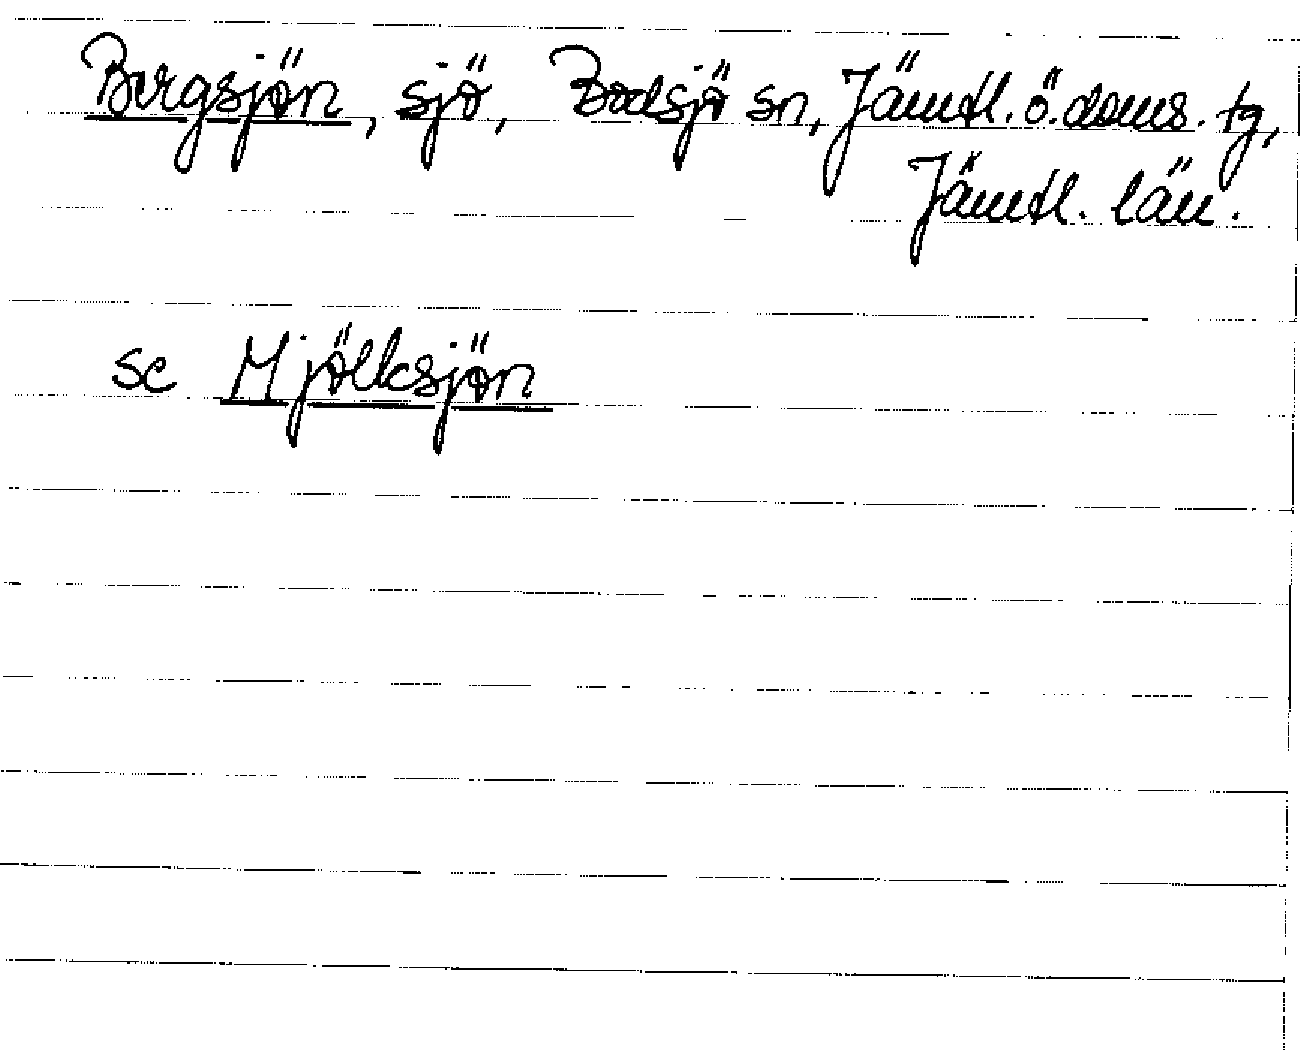 Bergsjön, sjö, Bodsjö sn, Jämtl. ö. doms. tg,
Jämtl. län.
se Mjölksjön